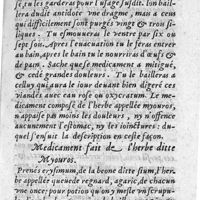 se, tu les garderas pour l'usage susdit. Ton bail-
lera dudit antidote vne dragme, mais a ceux
qui difficilement sont purgés vingt & trois sili-
ques. Tu esmouueras le ventre par six ou
sept fois. Apres l'euacuation tu le feras entrer
au bain, apres le bain tu le nourriras d'œufs &
de pain. Sache que se medicament a mitigué,
& cedé grandes douleurs. Tu le bailleras a
celluy qui aura le ioue deuant bien digeré ces
viandes auec eau rose ou oxycratum. Le me-
dicament composé de l'herbe appellée myouros,
n appaise pas moins les douleurs, ny n'offence
aucunement l'estomac, ny les iointures: du-
quel s'ensuit la description en ceste façon.
Medicament fait de l'herbe ditte
Myouros.
Prenés erysimum, de la bonne ditte sium, l'her-
be appellée queue de regnard, agaric, de chacun
vne once pour potion qu'on y mesle vn scrupu-